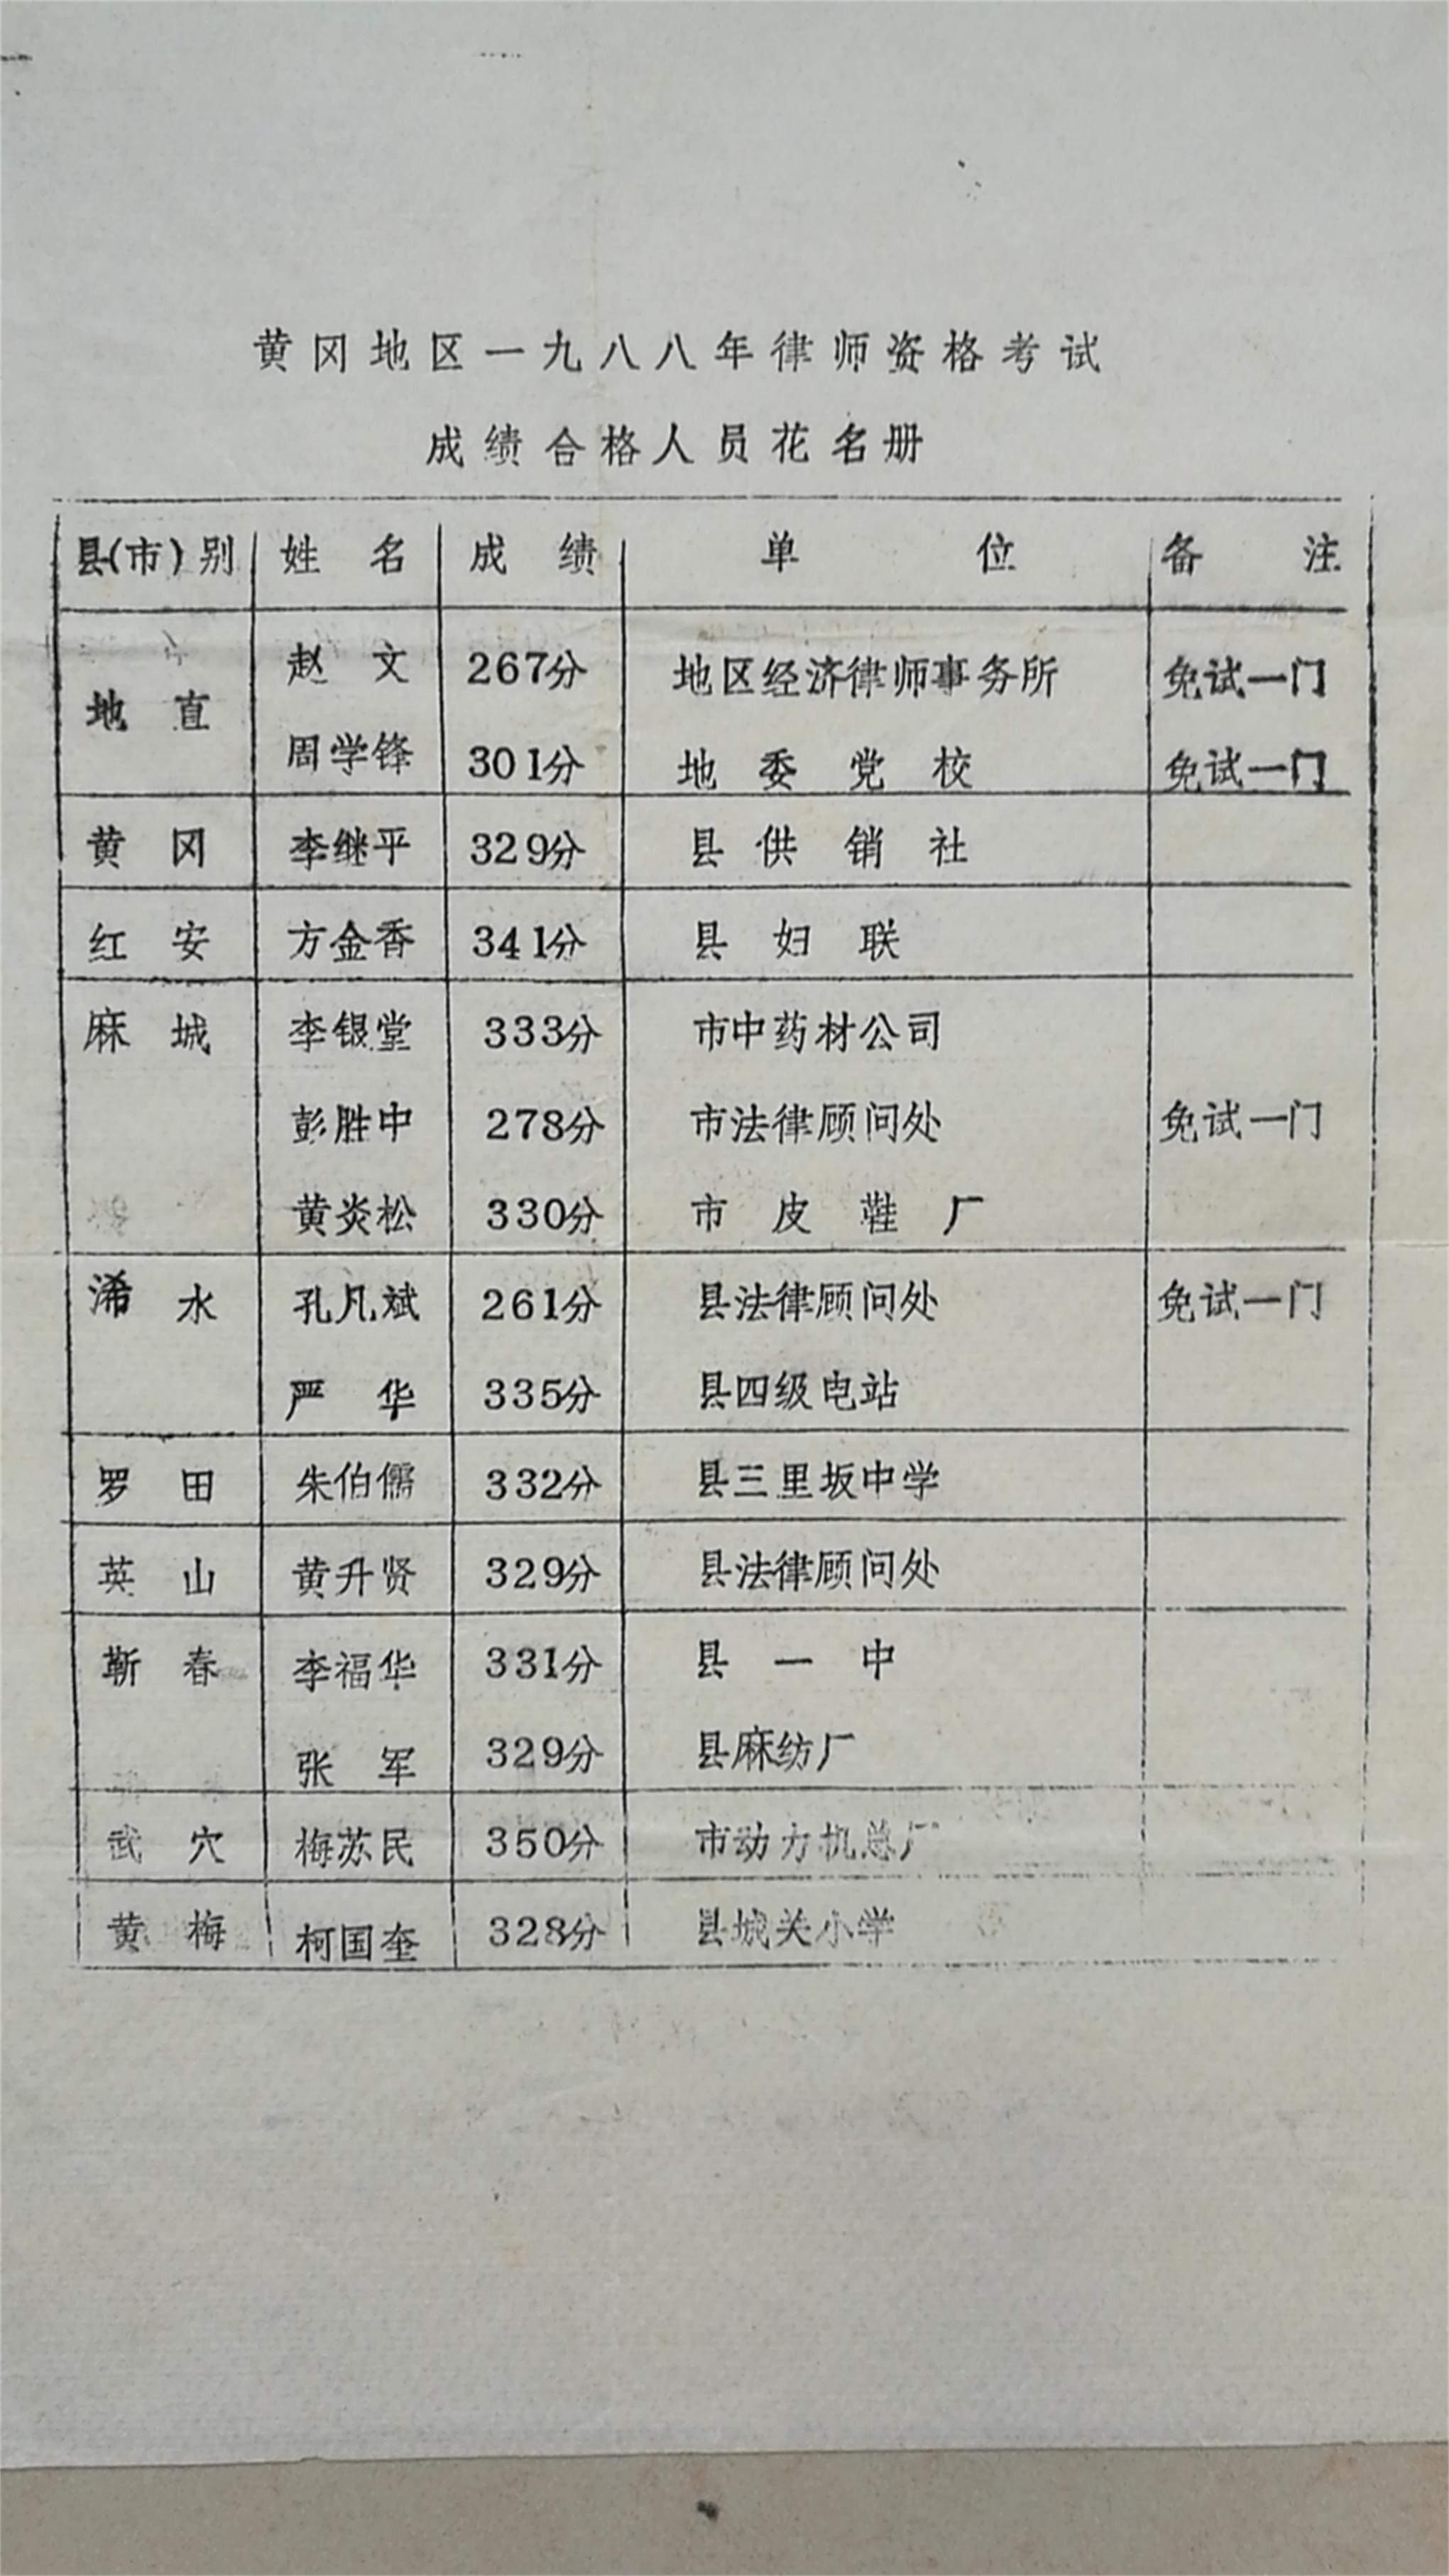 黄冈地区一九八八年律师资格考试
成绩合格人员花名册
县(市)别 姓名 成绩 单位 备注
地直 赵文 267分 地区经济律师事务所 免试一门
周学锋 301分 地委党校 免试一门
黄冈 李继平 329分 县供销社
红安 方金香 341分 县妇联
麻城 李银堂 333分 市中药材公司
彭胜中 278分 市法律顾问处 免试一门
黄炎松 330分 市皮鞋厂
浠水 孔凡斌 261分 县法律顾问处 免试一门
严华 335分 县四级电站
罗田 朱伯儒 332分 县三里坂中学
英山 黄升贤 329分 县法律顾问处
蕲春 李福华 331分 县一中
张军 329分 县麻纺厂
武穴 梅苏民 350分 市动力机总厂
黄梅 柯国奎 328分 县城关小学